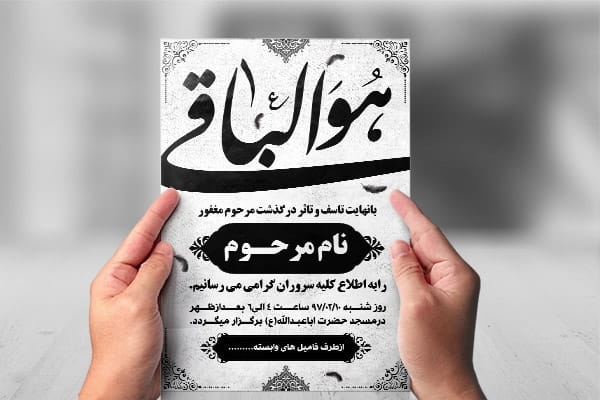 هُوَ الباقی
بانهایت تاسف و تاثر درگذشت مرحوم مغفور
نام مرحوم
رابه اطلاع کلیه سروران گرامی می رسانیم.
روز شنبه ۹۷/۰۲/۱۰ ساعت ٤ الی٦ بعدازظهر
درمسجد حضرت اباعبدالله(ع) برگزار میگردد.
ازطرف فامیل های وابسته:.........